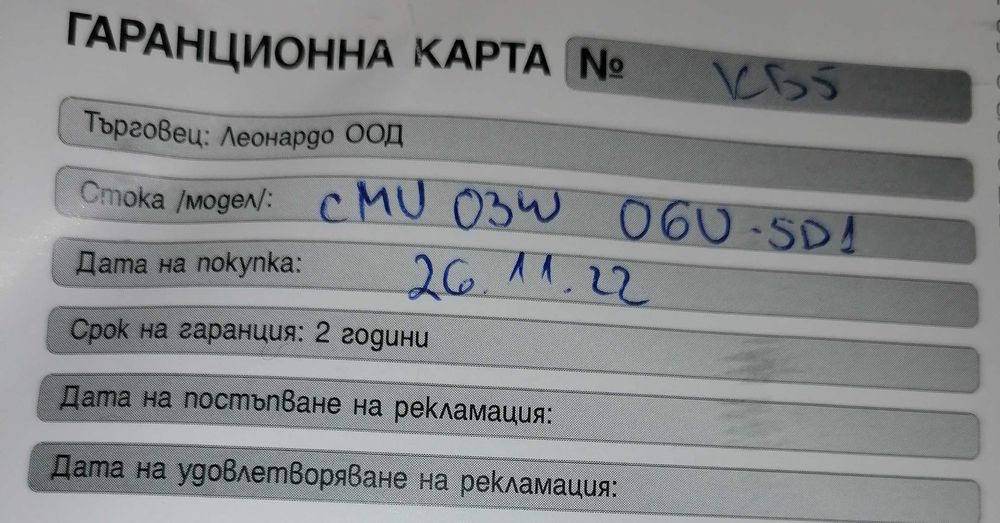 ГАРАНЦИОННА КАРТА № КБ5
Търговец: Леонардо ООД
Стока /модел/: CMU 03W 06U-SD1
Дата на покупка: 26.11.22
Срок на гаранция: 2 години
Дата на постъпване на рекламация:
Дата на удовлетворяване на рекламация: